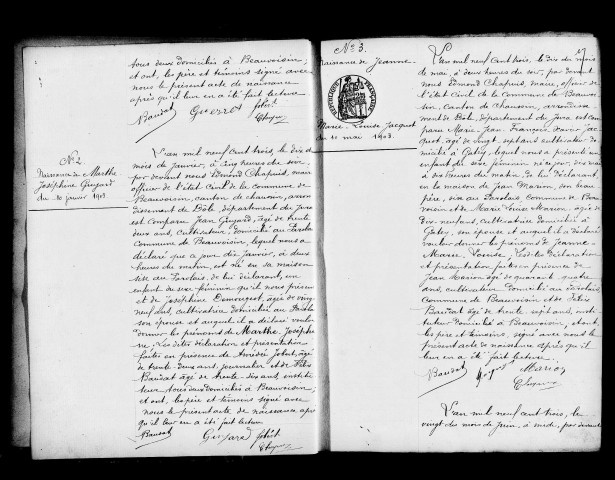 tous deux domiciliés à Beauvoisin;
et ont, les père et témoins signé avec
nous le présent acte de naissance
après qu'il leur en a été fait lecture
Bausat Guerrot Jobit
Chapuis
N° 2
Naissance de Marthe
Joséphine Guyard
du 10 janvier 1903
L'an mil neuf cent trois, le dix du
mois de janvier, à cinq heures du soir
par devant nous Edmond Chapuis, maire
officier de l'état civil de la commune de
Beauvoisin, canton de Chaussin, arron
dissement de Dôle, département du Jura
est comparu Jean Guyard, âgé de trente
deux ans, cultivateur, domicilié au Parolois
commune de Beauvoisin, lequel nous a
déclaré que ce jour dix janvier, à deux
heures du matin, est né en sa maison
sise au Parolois, de lui déclarant, un
enfant de sexe féminin qu'il nous présente
et de Joséphine Demougeot, âgée de vingt
neuf ans, cultivatrice domiciliée au Parolois
son épouse et auquel il a déclaré vouloir
donner les prénoms de Marthe Joséphi
ne. Les dites déclaration et présentation
faites en présence de Amédée Jobit, âgé
de trente deux ans journalier et de Félix
Bausat âgé de trente six ans, institu
teur tous deux domiciliés à Beauvoisin;
et ont, les père et témoins signé avec
nous le présent acte de naissance après
qu'il leur en a été fait lecture
Bausat Guyard Jobit
Chapuis
N° 3.
Naissance de Jeanne
RÉPUBLIQUE FRANÇAISE
Marie-Louise Jacquot
du 10 mai 1903.
L'an mil neuf cent trois, le dix du mois
de mai, à deux heures du soir, par devant
nous Edmond Chapuis, maire, officier de
l'état civil de la commune de Beauvoi
sin, canton de Chaussin, arrondisse
ment de Dole, département du Jura est com
paru Marie Jean François Xavier Jac
quot, âgé de vingt sept ans cultivateur do
micilié à Gatey, lequel nous a présenté un
enfant du sexe féminin né ce jour, dix mai
à dix heures du matin, de lui déclarant,
en la maison de Jean Marion, son beau
père, sise au Parolois commune de Beau
voisin et de Marie Louise Marion, âgée
de dix-neuf ans, cultivatrice domiciliée à
Gatey, son épouse et auquel il a déclaré
vouloir donner les prénoms de Jeanne-
Marie Louise. Les dites déclaration
et présentation faites en présence de
Jean Marion âgé de quarante quatre
ans, cultivateur domicilié au Parolois
commune de Beauvoisin et de Félix
Bausat âgé de trente sept ans, insti
tuteur domicilié à Beauvoisin, et ont
les père et témoins, signé avec nous le
présent acte de naissance après qu'il
leur en a été fait lecture
Bausat Marion
Chapuis
L'an mil neuf cent trois, le
vingt du mois de juin, à midi, par devant